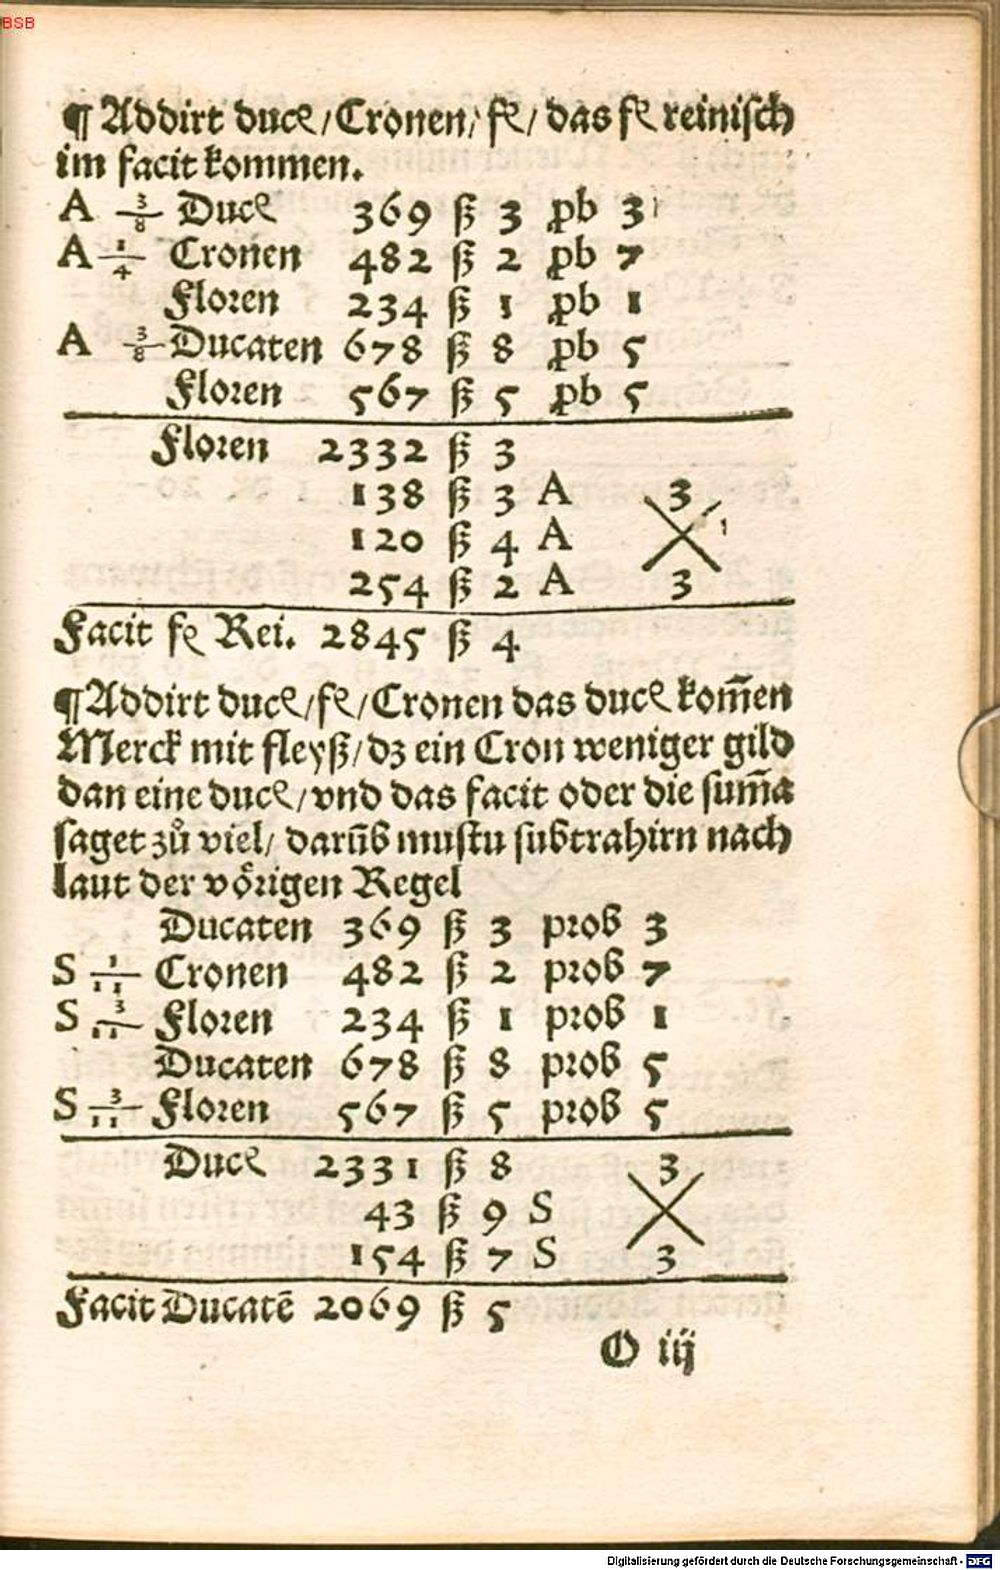 BSB
¶ Addirt ducꝭ/Cronen/ fꝭ/ das fꝭ reinisch
im facit kommen.
A 3/8 Ducꝭ 369 ß 3 pb 3
A 1/4 Cronen 482 ß 2 pb 7
Floren 234 ß 1 pb 1
A 3/8 Ducaten 678 ß 8 pb 5
Floren 567 ß 5 pb 5
Floren 2332 ß 3
138 ß 3 A 3
120 ß 4 A
254 ß 2 A 3
Facit fꝭ Rei. 2845 ß 4
¶ Addirt ducꝭ/fꝭ/Cronen das ducꝭ kom̄en
Merck mit fleyß/dz ein Cron weniger gild
dan eine ducꝭ/vnd das facit oder die sum̄a
saget zů viel/ darūb mustu subtrahirn nach
laut der vörigen Regel
Ducaten 369 ß 3 prob 3
S 1/11 Cronen 482 ß 2 prob 7
S 3/11 Floren 234 ß 1 prob 1
Ducaten 678 ß 8 prob 5
S 3/11 Floren 567 ß 5 prob 5
Ducꝭ 2331 ß 8 3
43 ß 9 S
154 ß 7 S 3
Facit Ducatē 2069 ß 5
O iij
Digitalisierung gefördert durch die Deutsche Forschungsgemeinschaft - DFG